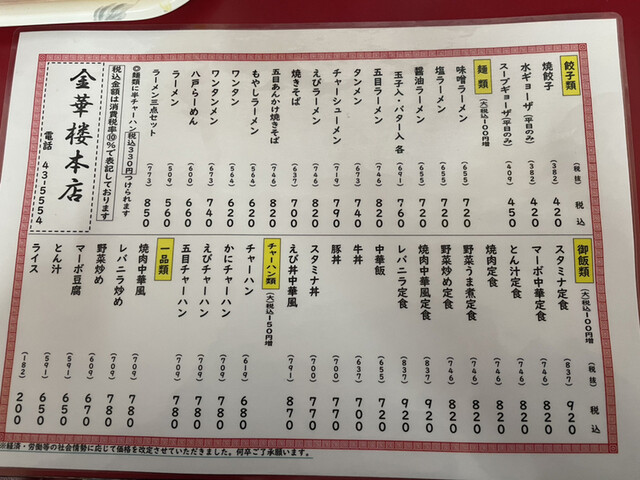 餃子類 (税抜) 税込
焼餃子 (382) 420
水ギョーザ(平日のみ) (382) 420
スープギョーザ(平日のみ) (409) 450
麺類 (大)税込100円増
味噌ラーメン (655) 720
塩ラーメン (655) 720
醤油ラーメン (655) 720
玉子入・バター入 各 (691) 760
五目ラーメン (746) 820
タンメン (673) 740
チャーシューメン (719) 790
えびラーメン (746) 820
焼きそば (637) 700
五目あんかけ焼きそば (746) 820
もやしラーメン (564) 620
ワンタン (564) 620
ワンタンメン (673) 740
八戸らーめん (600) 660
ラーメン (509) 560
ラーメン三点セット (773) 850
◎麺類に半チャーハン税込330円つけられます
税込金額は消費税率⑩%で表記しております
金華楼本店
電話 43-5554
御飯類 (大)税込100円増 (税抜) 税込
スタミナ定食 (837) 920
マーボ中華定食 (746) 820
とん汁定食 (746) 820
焼肉定食 (746) 820
野菜うま煮定食 (746) 820
野菜炒め定食 (746) 820
焼肉中華風定食 (837) 920
レバニラ定食 (837) 920
中華飯 (655) 720
牛丼 (637) 700
豚丼 (700) 770
スタミナ丼 (700) 770
えび丼中華風 (791) 870
チャーハン類 (大)税込150円増
チャーハン (619) 680
かにチャーハン (709) 780
えびチャーハン (709) 780
五目チャーハン (709) 780
一品類
焼肉中華風 (709) 780
レバニラ炒め (709) 780
野菜炒め (609) 670
マーボ豆腐 (591) 650
とん汁 (591) 650
ライス (182) 200
※経済・労働等の社会情勢に応じて価格を改定させていただきました。何卒ご了承願います。